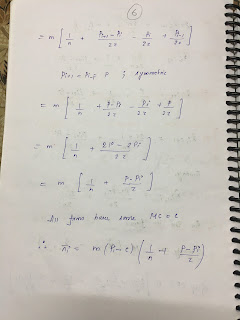 6
= m [ 1/n + (Pi+1 - Pi)/2τ - Pi/2τ + Pi-1/2τ ]
Pi+1 = Pi-1 = P symmetric
= m [ 1/n + (P-Pi)/2τ - Pi/2τ + P/2τ ]
= m [ 1/n + (2P - 2Pi)/2τ ]
= m [ 1/n + (P-Pi)/τ ]
All firms have same MC = c
∴ πi = m (Pi - c) ( 1/n + (P-Pi)/τ )